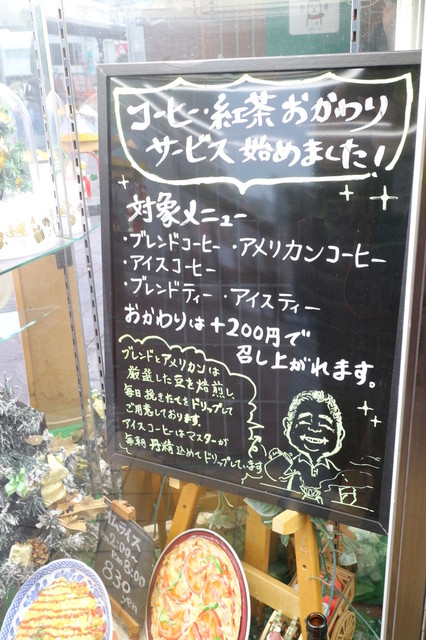 コーヒー・紅茶 おかわり
サービス 始めました!
対象メニュー
・ブレンドコーヒー ・アメリカンコーヒー
・アイスコーヒー
・ブレンドティー ・アイスティー
おかわりは +200円で
召し上がれます。
ブレンドとアメリカンは
厳選した豆を焙煎し、
毎日挽きたてをドリップして
ご用意しております。
アイスコーヒーはマスターが
毎朝 丹精込めてドリップしています
ムライス
830
yen